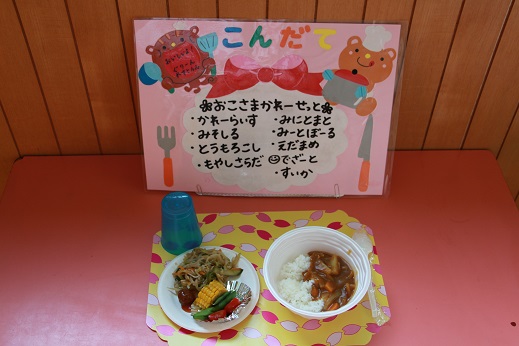 こんだて
❀おこさまかれーせっと❀
・かれーらいす
・みそしる
・とうもろこし
・もやしさらだ
・みにとまと
・みーとぼーる
・えだまめ
☺でざーと
・すいか